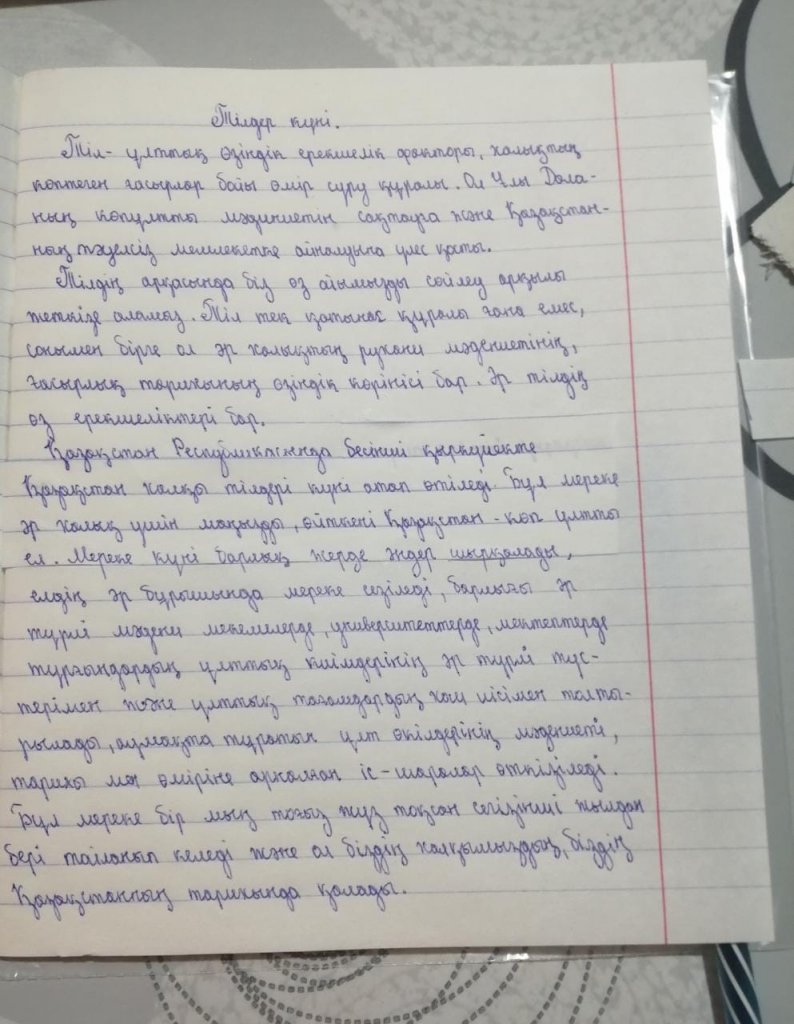 Тілдер күні.
Тіл- ұлттық өзіндік ерекшелік факторы, халықтың
көптеген ғасырлар бойы өмір сүру құралы. Ол Ұлы Дала-
ның көпұлтты мәдиниетін сақтауға және Қазақстан-
ның тәуелсіз мемлекетке айналуына үлес қатты.
Тілдің арқасында біз өз ойымызды сөйлеу арқылы
жеткізе аламыз. Тіл тек қатынас құралы ғана емес,
сонымен бірге ол әр халықтың рухани мәдениетінің,
ғасырлық тарихының өзіндік көрінісі бар. Әр тілдің
өз ерекшеліктері бар.
Қазақстан Республикасында бесінші қыркүйекте
Қазақстан халқы тілдері күні атап өтіледі. Бұл мереке
әр халық үшін маңызды, өйткені Қазақстан - көп ұлтты
ел. Мереке күні барлық жерде әндер шырқалады,
елдің әр бұрышында мереке сезіледі, барлығы әр
түрлі мәдени мекемелерде, университеттерде, мектептерде
тұрғындардың ұлттық киімдерінің әр түрлі түс-
терімен және ұлттық тағамдардың хош иісімен толты-
рылады, аумақта тұратын ұлт өкілдерінің мәдениеті,
тарихы мен өміріне арналған іс-шаралар өткізіледі.
Бұл мереке бір мың тоғыз жүз тоқсан сегізінші жылдан
бері тойланып келеді және ол біздің халқымыздың, біздің
Қазақстанның тарихында қалады.